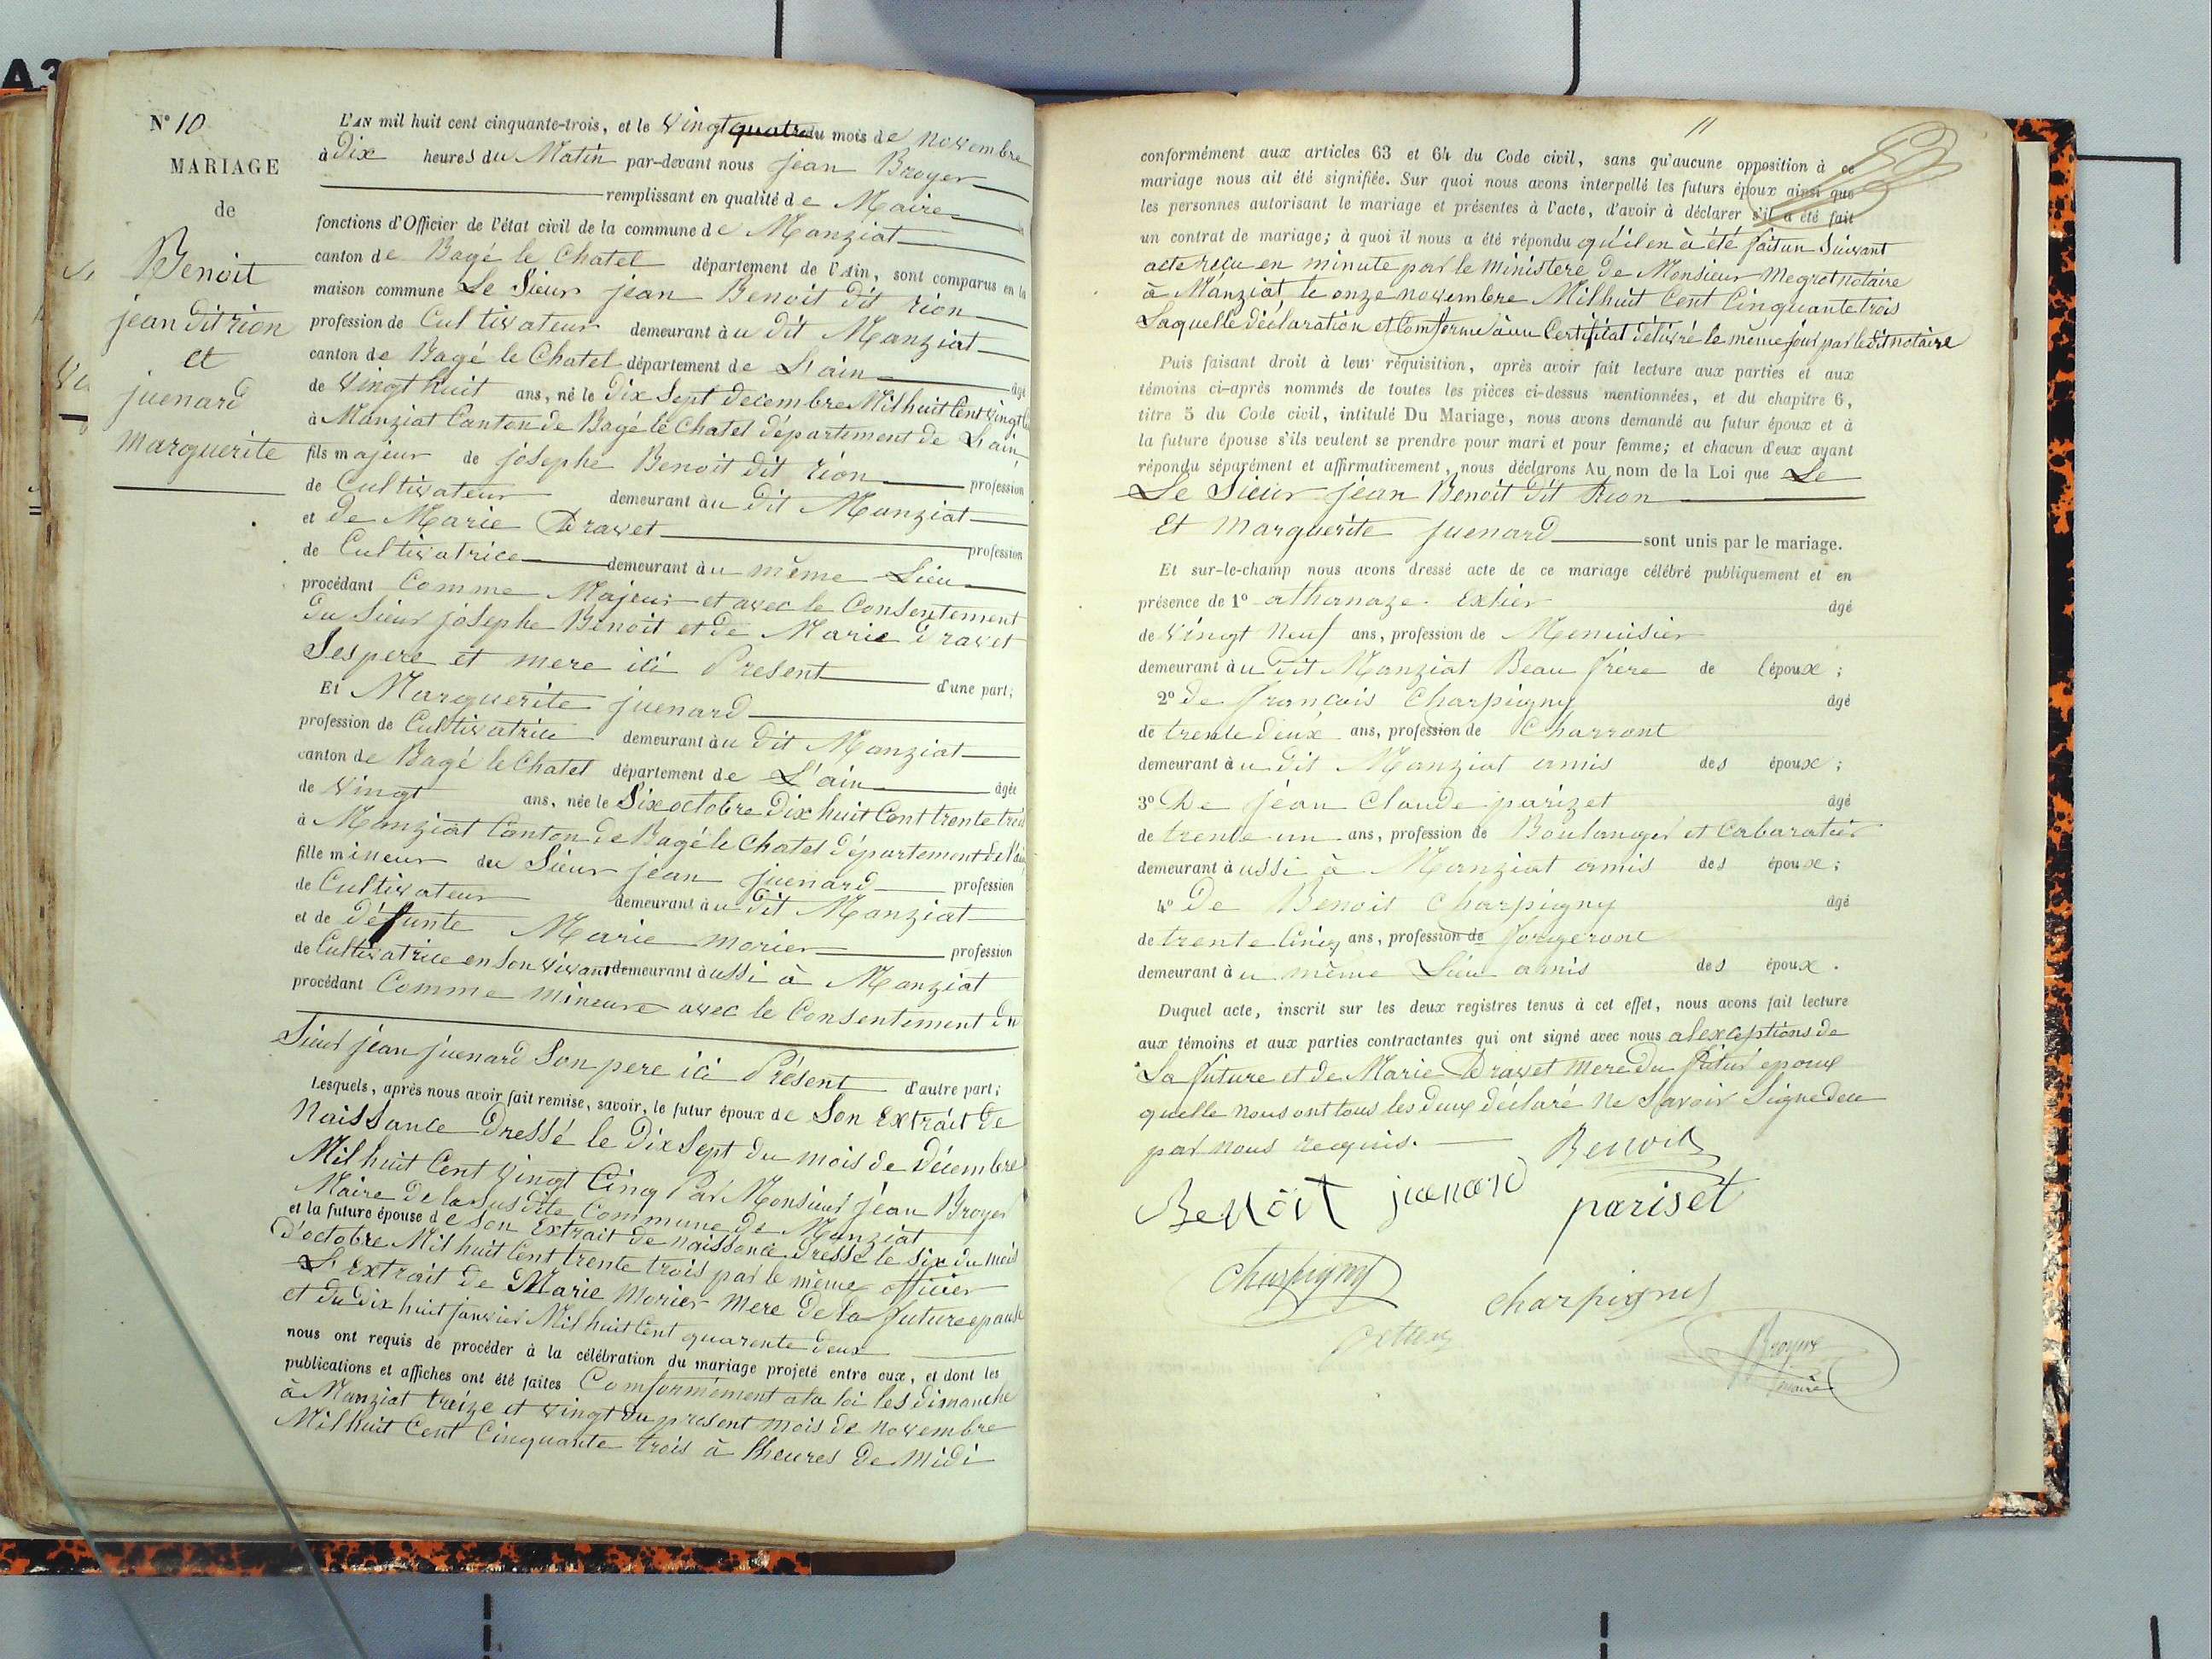 N° 10
MARIAGE
de
Benoit
jean dit rion
et
juenard
marguerite
L'AN mil huit cent cinquante-trois, et le vingt quatre du mois de novembre
à Dix heures du Matin par-devant nous jean Broyer
remplissant en qualité de Maire
fonctions d'Officier de l'état civil de la commune de Manziat
canton de Bagé le Chatel département de l'Ain, sont comparus en la
maison commune Le Sieur jean Benoit dit rion
profession de Cultivateur demeurant au dit Manziat
canton de Bagé le Chatel département de L'ain âgé
de vingt huit ans, né le dix Sept decembre Mil huit Cent vingt
à Manziat Canton de Bagé le Chatel département de L'ain
fils majeur de josephe Benoit dit rion profession
de Cultivateur demeurant au dit Manziat
et de Marie Dravet profession
de Cultivatrice demeurant au même Lieu
procédant Comme Majeur et avec le Consentement
du Sieur josephe Benoit et de Marie dravet
Ses pere et mere ici Present d'une part;
Et Marguerite juenard
profession de Cultivatrice demeurant au dit Manziat
canton de Bagé le Chatel département de L'ain âgée
de vingt ans, née le Six octobre Dix huit Cent trente trois
à Manziat Canton de Bagé le Chatel département de l'ain
fille mineur du Sieur jean juenard profession
de Cultivateur demeurant au dit Manziat
et de défunte Marie morier profession
de Cultivatrice en Son vivant demeurant aussi à Manziat
procédant Comme mineure avec le Consentement du
Sieur jean juenard Son pere ici Présent d'autre part;
Lesquels, après nous avoir fait remise, savoir, le futur époux de Son Extrait de
Naissance Dressé le Dix Sept du mois de Décembre
Mil huit Cent vingt Cinq Par Monsieur jean Broyer
Maire de la susdite Commune de Manziat
et la future épouse de son Extrait de naissance dressé le six du mois
d'octobre Mil huit Cent trente trois par le même officier
L'Extrait de Marie Morier mere de la future epouse
et du dix huit janvier Mil huit Cent quarente deux
nous ont requis de procéder à la célébration du mariage projeté entre eux, et dont les
publications et affiches ont été faites Comformément ala loi les dimanche
à Manziat treize et vingt du present mois de novembre
Mil huit Cent Cinquante trois à lheures de Midi
11
conformément aux articles 63 et 64 du Code civil, sans qu'aucune opposition à ce
mariage nous ait été signifiée. Sur quoi nous avons interpellé les futurs époux ainsi que
les personnes autorisant le mariage et présentes à l'acte, d'avoir à déclarer s'il a été fait
un contrat de mariage; à quoi il nous a été répondu qu'il en à été fait un Suivant
acte reçu en minute par le ministere de Monsieur Megret notaire
à Manziat le onze novembre Mil huit Cent Cinquante trois
Laquelle déclaration et Comforme à un Certifiat délivré le même jour par ledit notaire
Puis faisant droit à leur réquisition, après avoir fait lecture aux parties et aux
témoins ci-après nommés de toutes les pièces ci-dessus mentionnées, et du chapitre 6,
titre 5 du Code civil, intitulé Du Mariage, nous avons demandé au futur époux et à
la future épouse s'ils veulent se prendre pour mari et pour femme; et chacun d'eux ayant
répondu séparément et affirmativement, nous déclarons Au nom de la Loi que Le
Le Sieur jean Benoit dit Rion
Et Marguerite juenard sont unis par le mariage.
Et sur-le-champ nous avons dressé acte de ce mariage célébré publiquement et en
présence de 1° athanaze Exhier âgé
de vingt Neuf ans, profession de Menuisier
demeurant au dit Manziat Beau frère de l'époux;
2° de françois Charpigny âgé
de trente deux ans, profession de Charront
demeurant au dit Manziat amis des époux;
3° De jean Claude parizet âgé
de trente un ans, profession de Boulanger et Cabaratier
demeurant aussi à Manziat amis des époux;
4° De Benoit Charpigny âgé
de trente Cinq ans, profession de forgeront
demeurant au même Lieu amis des époux.
Duquel acte, inscrit sur les deux registres tenus à cet effet, nous avons fait lecture
aux témoins et aux parties contractantes qui ont signé avec nous alexceptions de
La future et de Marie Dravet mere du futur epoux
quelle nous ont tous les deux déclaré ne Savoir Signe deu
par nous requis.
Benoit
Benoit juenard pariset
charpigny
charpigny
Broyer
maire